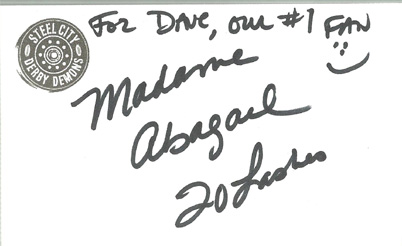 STEEL CITY
DERBY DEMONS
FOR DAVE, OUR #1 FAN
Madame
Abagael
20 Lashes